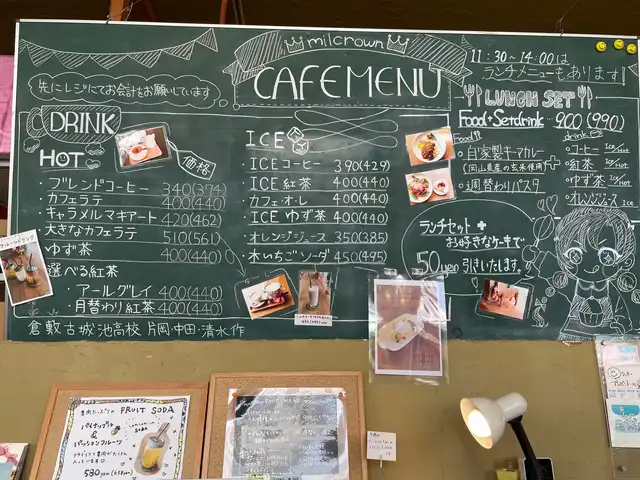 milcrown
CAFEMENU
先にレジにてお会計をお願いしています
11:30~14:00は
ランチメニューもあります!
DRINK
HOT
価格
・ブレンドコーヒー 340(374)
・カフェラテ 400(440)
・キャラメルマキアート 420(462)
・大きなカフェラテ 510(561)
・ゆず茶 400(440)
・選べる紅茶
アールグレイ 400(440)
月替わり紅茶 400(440)
倉敷古城池高校 片岡・中田・清水作
ICE
・ICEコーヒー 390(429)
・ICE 紅茶 400(440)
・カフェ・オ・レ 400(440)
・ICE ゆず茶 400(440)
・オレンジジュース 350(385)
・木いちごソーダ 450(495)
LUNCH SET
Food+Setdrink 900(990)
Food
・自家製キーマカレー
(岡山県産の玄米使用)
・週替わりパスタ
+
drink
・コーヒー Ice/Hot
・紅茶 Ice/Hot
・ゆず茶 Ice/Hot
・オレンジジュース Ice
ランチセット+
お好きなケーキで
50yen 引きいたします。
果肉たっぷりの FRUIT SODA
パイナップル
&
パッションフルーツ
580yen